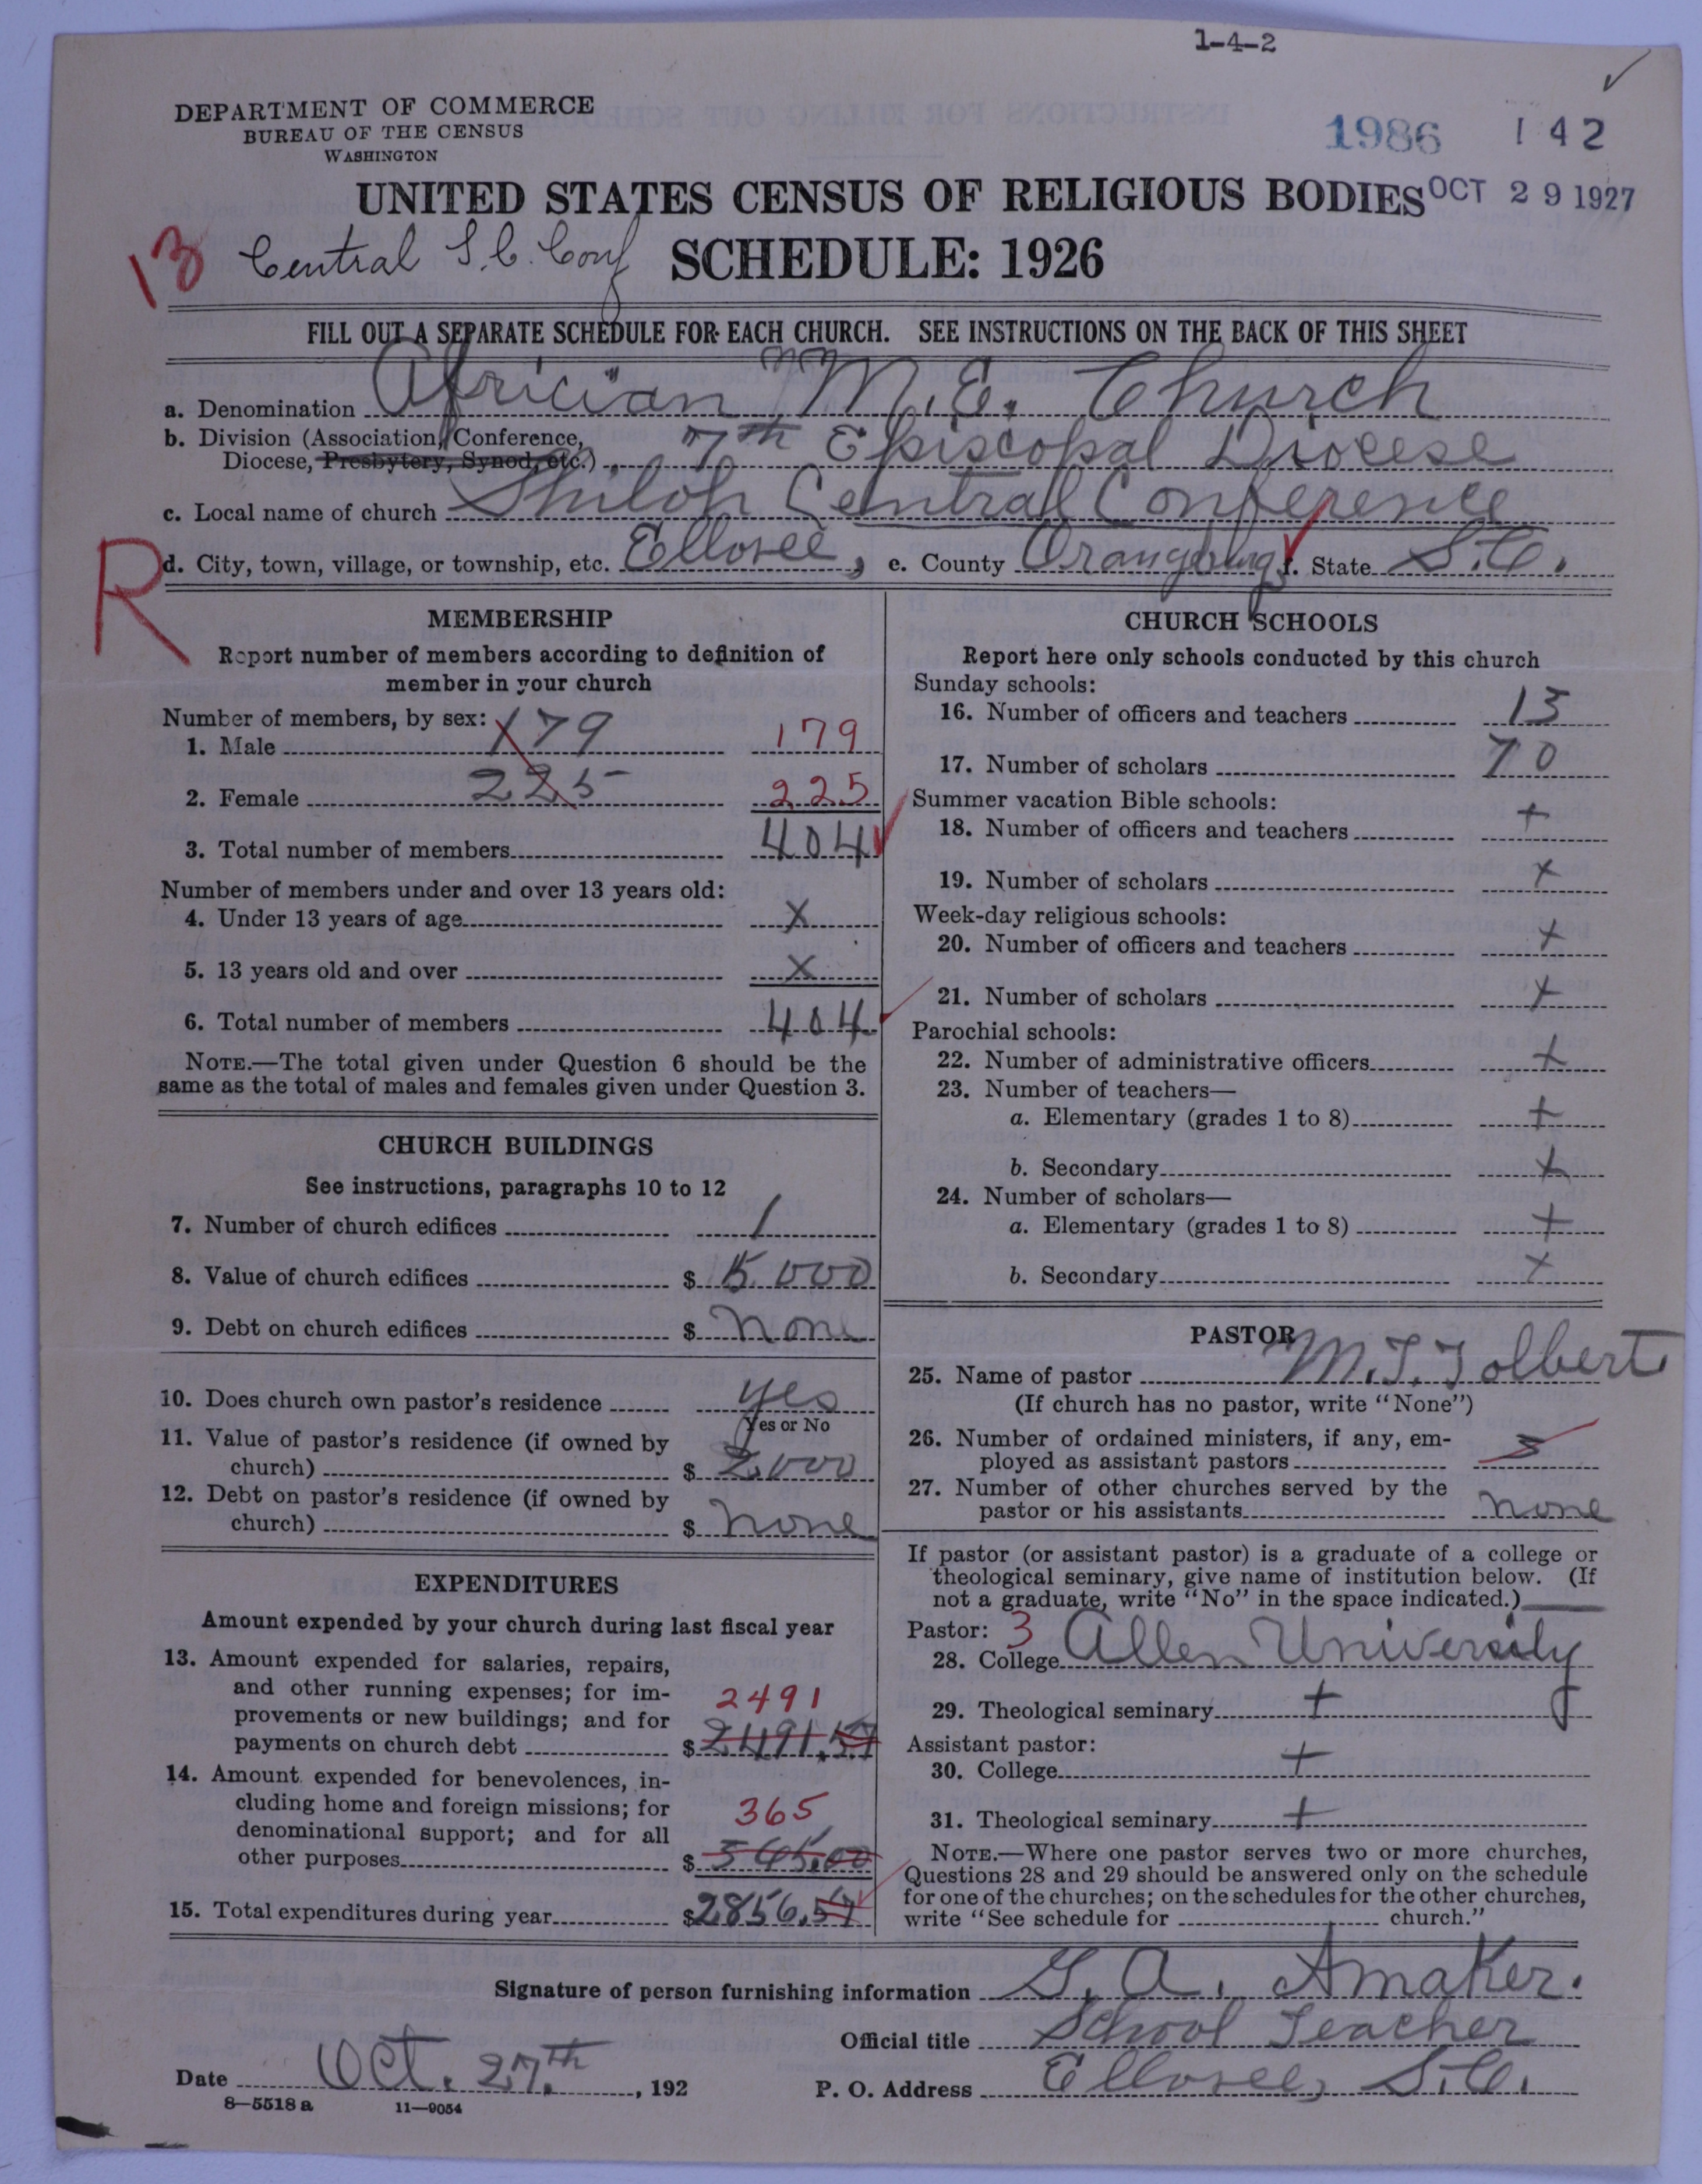 1-4-2
DEPARTMENT OF COMMERCE
BUREAU OF THE CENSUS
WASHINGTON
1986 142
UNITED STATES CENSUS OF RELIGIOUS BODIES OCT 29 1927
13 Central S.C. Conf SCHEDULE: 1926
FILL OUT A SEPARATE SCHEDULE FOR EACH CHURCH. SEE INSTRUCTIONS ON THE BACK OF THIS SHEET
a. Denomination Africian M.E. Church
b. Division (Association, Conference,
Diocese, Presbytery, Synod, etc.) 7th Episcopal Diocese
c. Local name of church Shiloh Central Conference
R d. City, town, village, or township, etc. Elloree, e. County Orangeburg f. State S.C.
MEMBERSHIP
Report number of members according to definition of
member in your church
Number of members, by sex:
1. Male 179 179
2. Female 225 225
3. Total number of members 404
Number of members under and over 13 years old:
4. Under 13 years of age X
5. 13 years old and over X
6. Total number of members 404
NOTE.—The total given under Question 6 should be the
same as the total of males and females given under Question 3.
CHURCH BUILDINGS
See instructions, paragraphs 10 to 12
7. Number of church edifices 1
8. Value of church edifices $ 5000
9. Debt on church edifices $ none
10. Does church own pastor's residence yes
Yes or No
11. Value of pastor's residence (if owned by
church) $ 2000
12. Debt on pastor's residence (if owned by
church) $ none
EXPENDITURES
Amount expended by your church during last fiscal year
13. Amount expended for salaries, repairs,
and other running expenses; for im-
provements or new buildings; and for 2491
payments on church debt $ 2491.57
14. Amount expended for benevolences, in-
cluding home and foreign missions; for 365
denominational support; and for all
other purposes $ 365.00
15. Total expenditures during year $ 2856.57
CHURCH SCHOOLS
Report here only schools conducted by this church
Sunday schools:
16. Number of officers and teachers 13
17. Number of scholars 70
Summer vacation Bible schools:
18. Number of officers and teachers +
19. Number of scholars x
Week-day religious schools:
20. Number of officers and teachers +
21. Number of scholars +
Parochial schools:
22. Number of administrative officers +
23. Number of teachers—
a. Elementary (grades 1 to 8) +
b. Secondary +
24. Number of scholars—
a. Elementary (grades 1 to 8) +
b. Secondary +
PASTOR
25. Name of pastor M.T. Tolbert
(If church has no pastor, write "None")
26. Number of ordained ministers, if any, em-
ployed as assistant pastors
27. Number of other churches served by the
pastor or his assistants none
If pastor (or assistant pastor) is a graduate of a college or
theological seminary, give name of institution below. (If
not a graduate, write "No" in the space indicated.)
Pastor: 3
28. College Allen University
29. Theological seminary +
Assistant pastor:
30. College +
31. Theological seminary +
NOTE.—Where one pastor serves two or more churches,
Questions 28 and 29 should be answered only on the schedule
for one of the churches; on the schedules for the other churches,
write "See schedule for church."
Signature of person furnishing information G. A. Amaker.
Official title School Teacher
Date Oct. 27th, 192 P. O. Address Elloree, S.C.
8—5518 a 11—9054